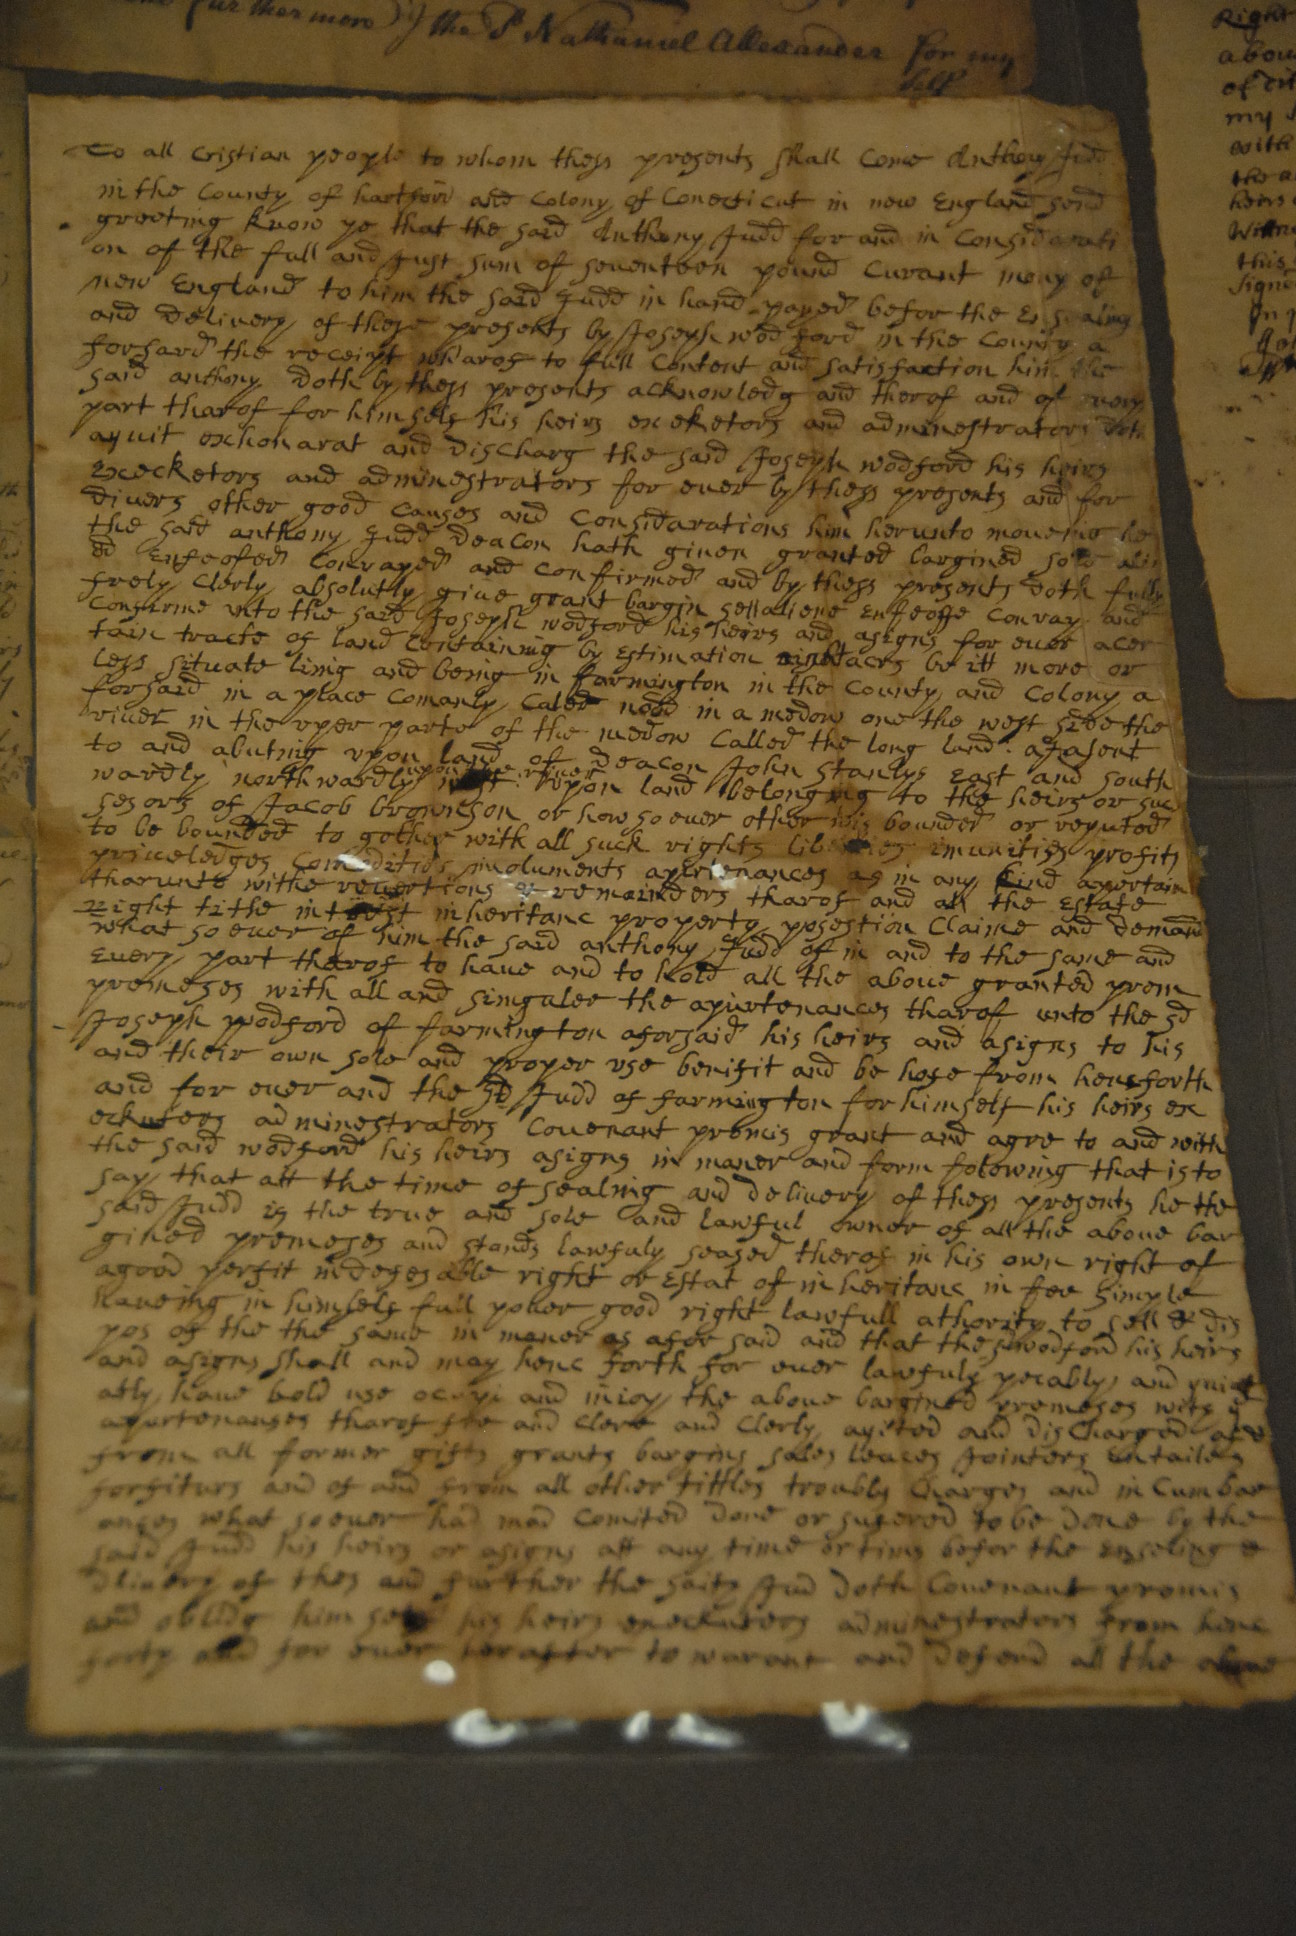 further more I the Sd Nathaniel Alexander for my
self
To all Cristian people to whom thess presents shall Come Anthony Judd
in the County of hartford and Colony of Conecticut in new England send
greeting know ye that the said Anthony Judd for and in Considarati
on of the full and Just sum of seventeen pound Curant mony of
new England to him the said Judd in hand payed befor the Ensealing
and delivery of these presents by Joseph wodford in the County a
forsard the receipt wharof to full Content and satisfaction him the
said anthony doth by thess presents acknowledg and therof and of every
part tharof for himself his heirs exeketors and adminestrators doth
aquit exhonarat and discharg the said Joseph wodford his heirs
Execketors and adminestrators for ever by thess presents and for
divers other good Causes and Considarations him herunto moveing he
the said anthony Judd Deacon hath given granted bargined sold alin
ed Enfeofed Convayed and Confirmed and by thess presents doth fully
frely Clerly absolutly give grant bargin sell aliene Enfeoffe Convay and
Confirme unto the said Joseph wodford his heirs and asigns for ever a cer
tain tracte of land Containing by Estimation eight acrs be itt more or
less situate linig and being in farmington in the County and Colony a
forsaid in a place Comanly Caled nood in a medow one the west side the
river in the uper parte of the medow Called the long land: adjasent
to and abuting upon land of Deacon John Stanlys East and South
wardly northwardly upon the river upon land belonging to the heirs or suc
sesors of Jacob bronson or how so ever other wis bounded or reputed
to be bounded to gether with all such rights liberties imunities profits
priveledges Comodities imoluments apirtenances as in any kind apertain
tharunto withe revertions & remainders tharof and all the Estate
right tithe intrist inheritanc property posestion Claime and demand
what so ever of him the said anthony Judd of in and to the same and
Every part tharof to have and to hold all the above granted prem
premeses with all and singuler the apurtenances tharof unto the sd
Joseph wodford of farmington aforsaid his heirs and asigns to his
and their own sole and proper use benifit and be hofe from hensforth
and for ever and the sd Judd of farmington for himself his heirs ex
eckuters adminestrators Covenant promis grant and agre to and with
the said wodford his heirs asigns in maner and form folowing that is to
say that att the time of sealing and delivery of thess presents he the
said Judd is the true and sole and lawful owner of all the above bar
gined premeses and stands lawfuly seased therof in his own right of
a good perfit indefesable right or Estat of inheritanc in fee simple
haveing in himself full power good right lawfull athority to sell & dis
pos of the the same in maner as afor said and that the sd wodford his heirs
and asigns shall and may henc forth for ever lawfuly pecably and quiet
atly have hold use ocupi and injoy the above bargined premeses with ye
apurtenanses tharof fre and Clere and Clerly aquited and disCharged of &
from all former gifts grants bargins sales leaces Jointers Entailes
forfiturs and of and from all other tittles troubls Charges and in Cumbar
anses what so ever had mad Comited done or sufered to be done by the
said Judd his heirs or asigns att any time or tims befor the Enseling &
dlivery of thes and further the said Jud doth Covenant promis
and oblidg him self his heirs execkuters adminestrators from henc
forth and for ever herafter to warant and defend all the above